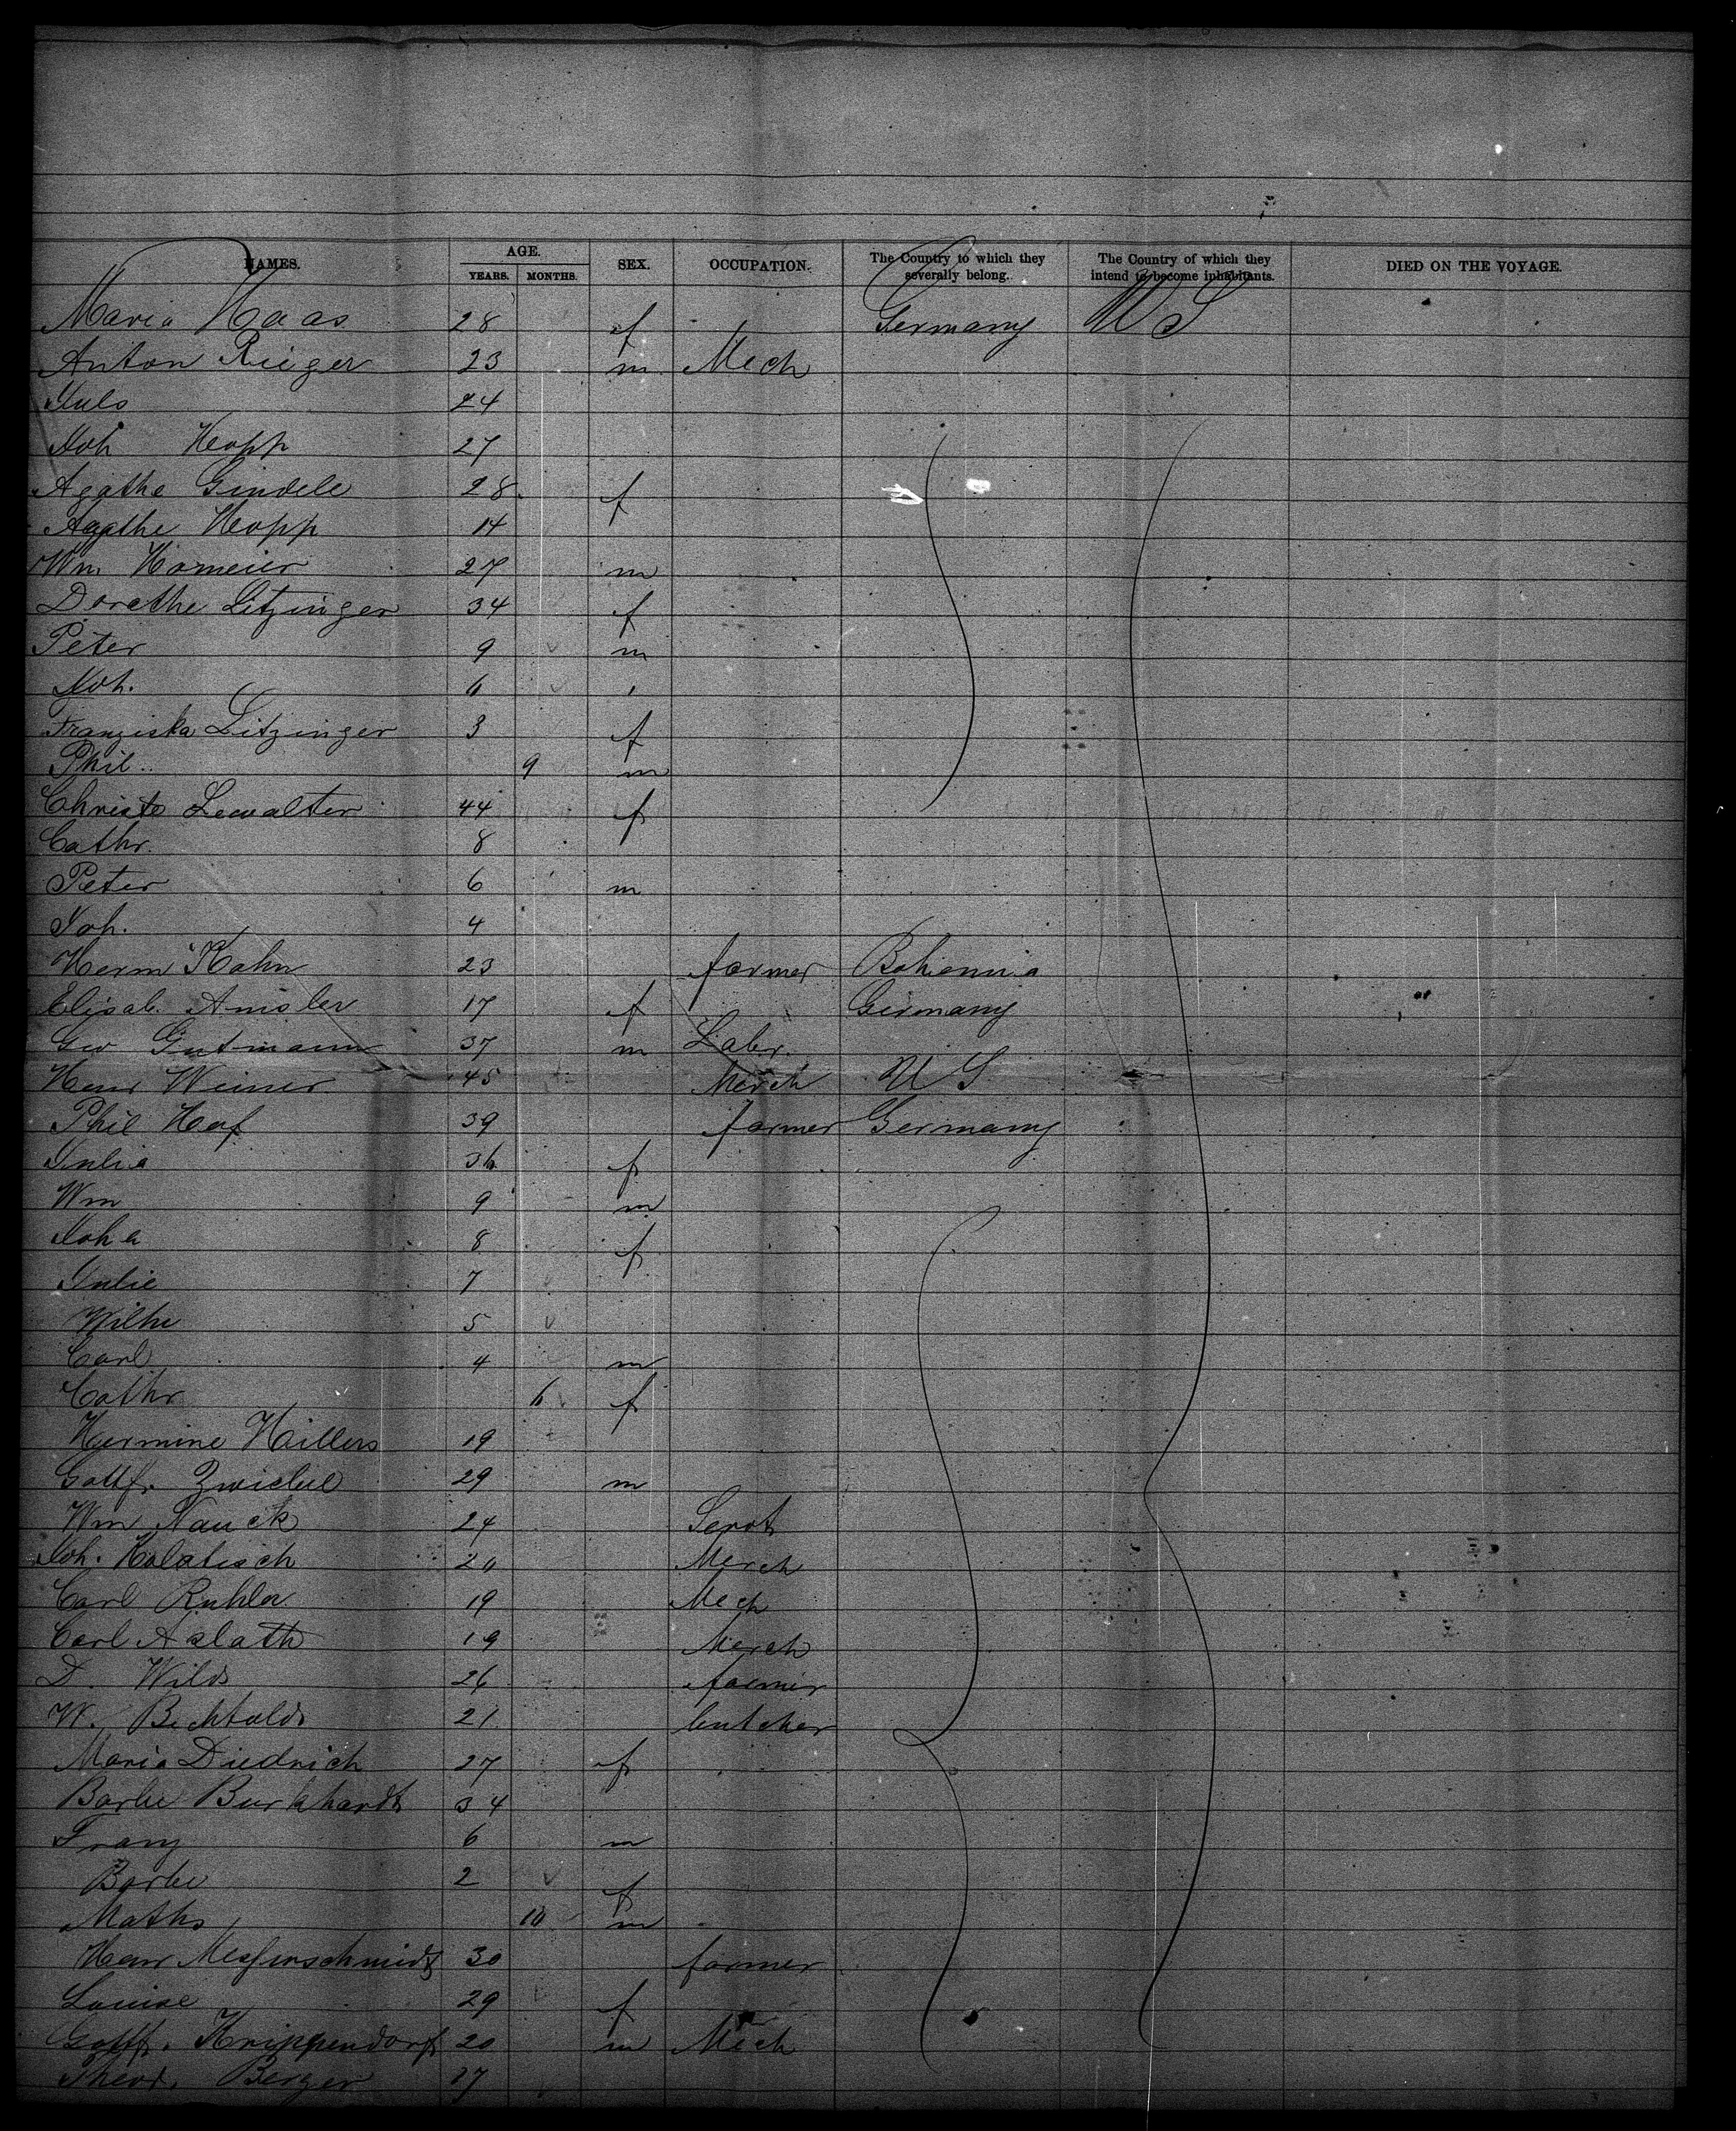 NAMES. AGE. YEARS. MONTHS. SEX. OCCUPATION. The Country to which they severally belong. The Country of which they intend to become inhabitants. DIED ON THE VOYAGE.
Maria Haas 28 f Germany U S
Anton Rieger 23 m Mech
Juls 24
Joh Hopp 27
Agathe Gindele 28 f
Agathe Hopp 14
Wm Homeier 27 m
Dorethe Litzinger 34 f
Peter 9 m
Joh. 6
Franziska Litzinger 3 f
Phil.. 9 m
Christe Lewalter 44 f
Cathr. 8
Peter 6 m
Joh. 4
Herm Kahn 23 farmer Bohemia
Elisab. Amsler 17 f Germany
Geo Gutmann 37 m Labr.
Henr Weimer 45 Merch U S
Phil Haf 39 farmer Germany
Julia 36 f
Wm 9 m
Joha 8 f
Julie 7
Wilhe 5
Carl 4 m
Cathr 6 f
Hermine Hillers 19
Gottfr. 29 m
Wm Nauck 24 Servt
Joh. Kolatisch 20 Merch
Carl Ruhler 19 Mech
Carl Aslath 19 Merch
D. Wilds 26 farmer
W. Bechtolds 21 butcher
Maria Diedrich 27 f
Barbe Burkhardt 34
Franz 6 m
Barbe 2 f
Maths 10 m
Henr Messerschmidt 30 farmer
Louise 29 f
Gottfr. Krippendorf 20 m Mech
Theod. Berger 27